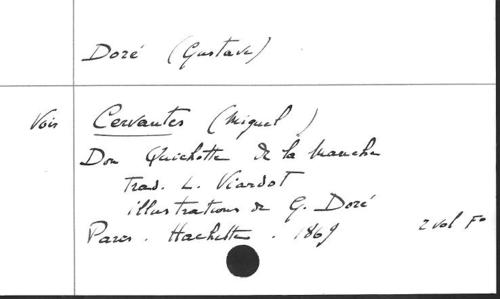 Doré (Gustave)
Voir Cervantes (Miguel)
Don Quichotte de la Manche
Trad. L. Viardot
illustrations de G. Doré
Paris. Hachette. 1869 2 vol Fº